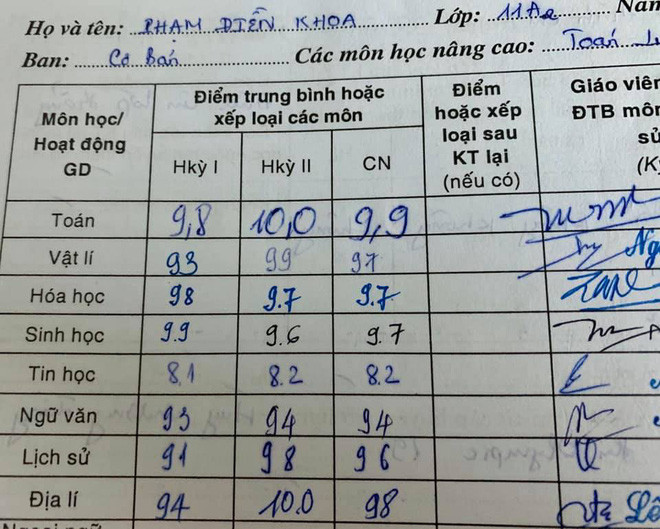 Họ và tên: PHẠM ĐIỀN KHOA Lớp: 11A2
Ban: Cơ Bản Các môn học nâng cao: Toán
Môn học/ Hoạt động GD
Điểm trung bình hoặc xếp loại các môn
Hkỳ I Hkỳ II CN
Điểm hoặc xếp loại sau KT lại (nếu có)
Giáo viên
ĐTB môn
Toán 9,8 10,0 9,9
Vật lí 93 99 97
Hóa học 98 9.7 9.7
Sinh học 9.9 9.6 9.7
Tin học 8.1 8.2 8.2
Ngữ văn 93 94 94
Lịch sử 91 98 96
Địa lí 94 10.0 98